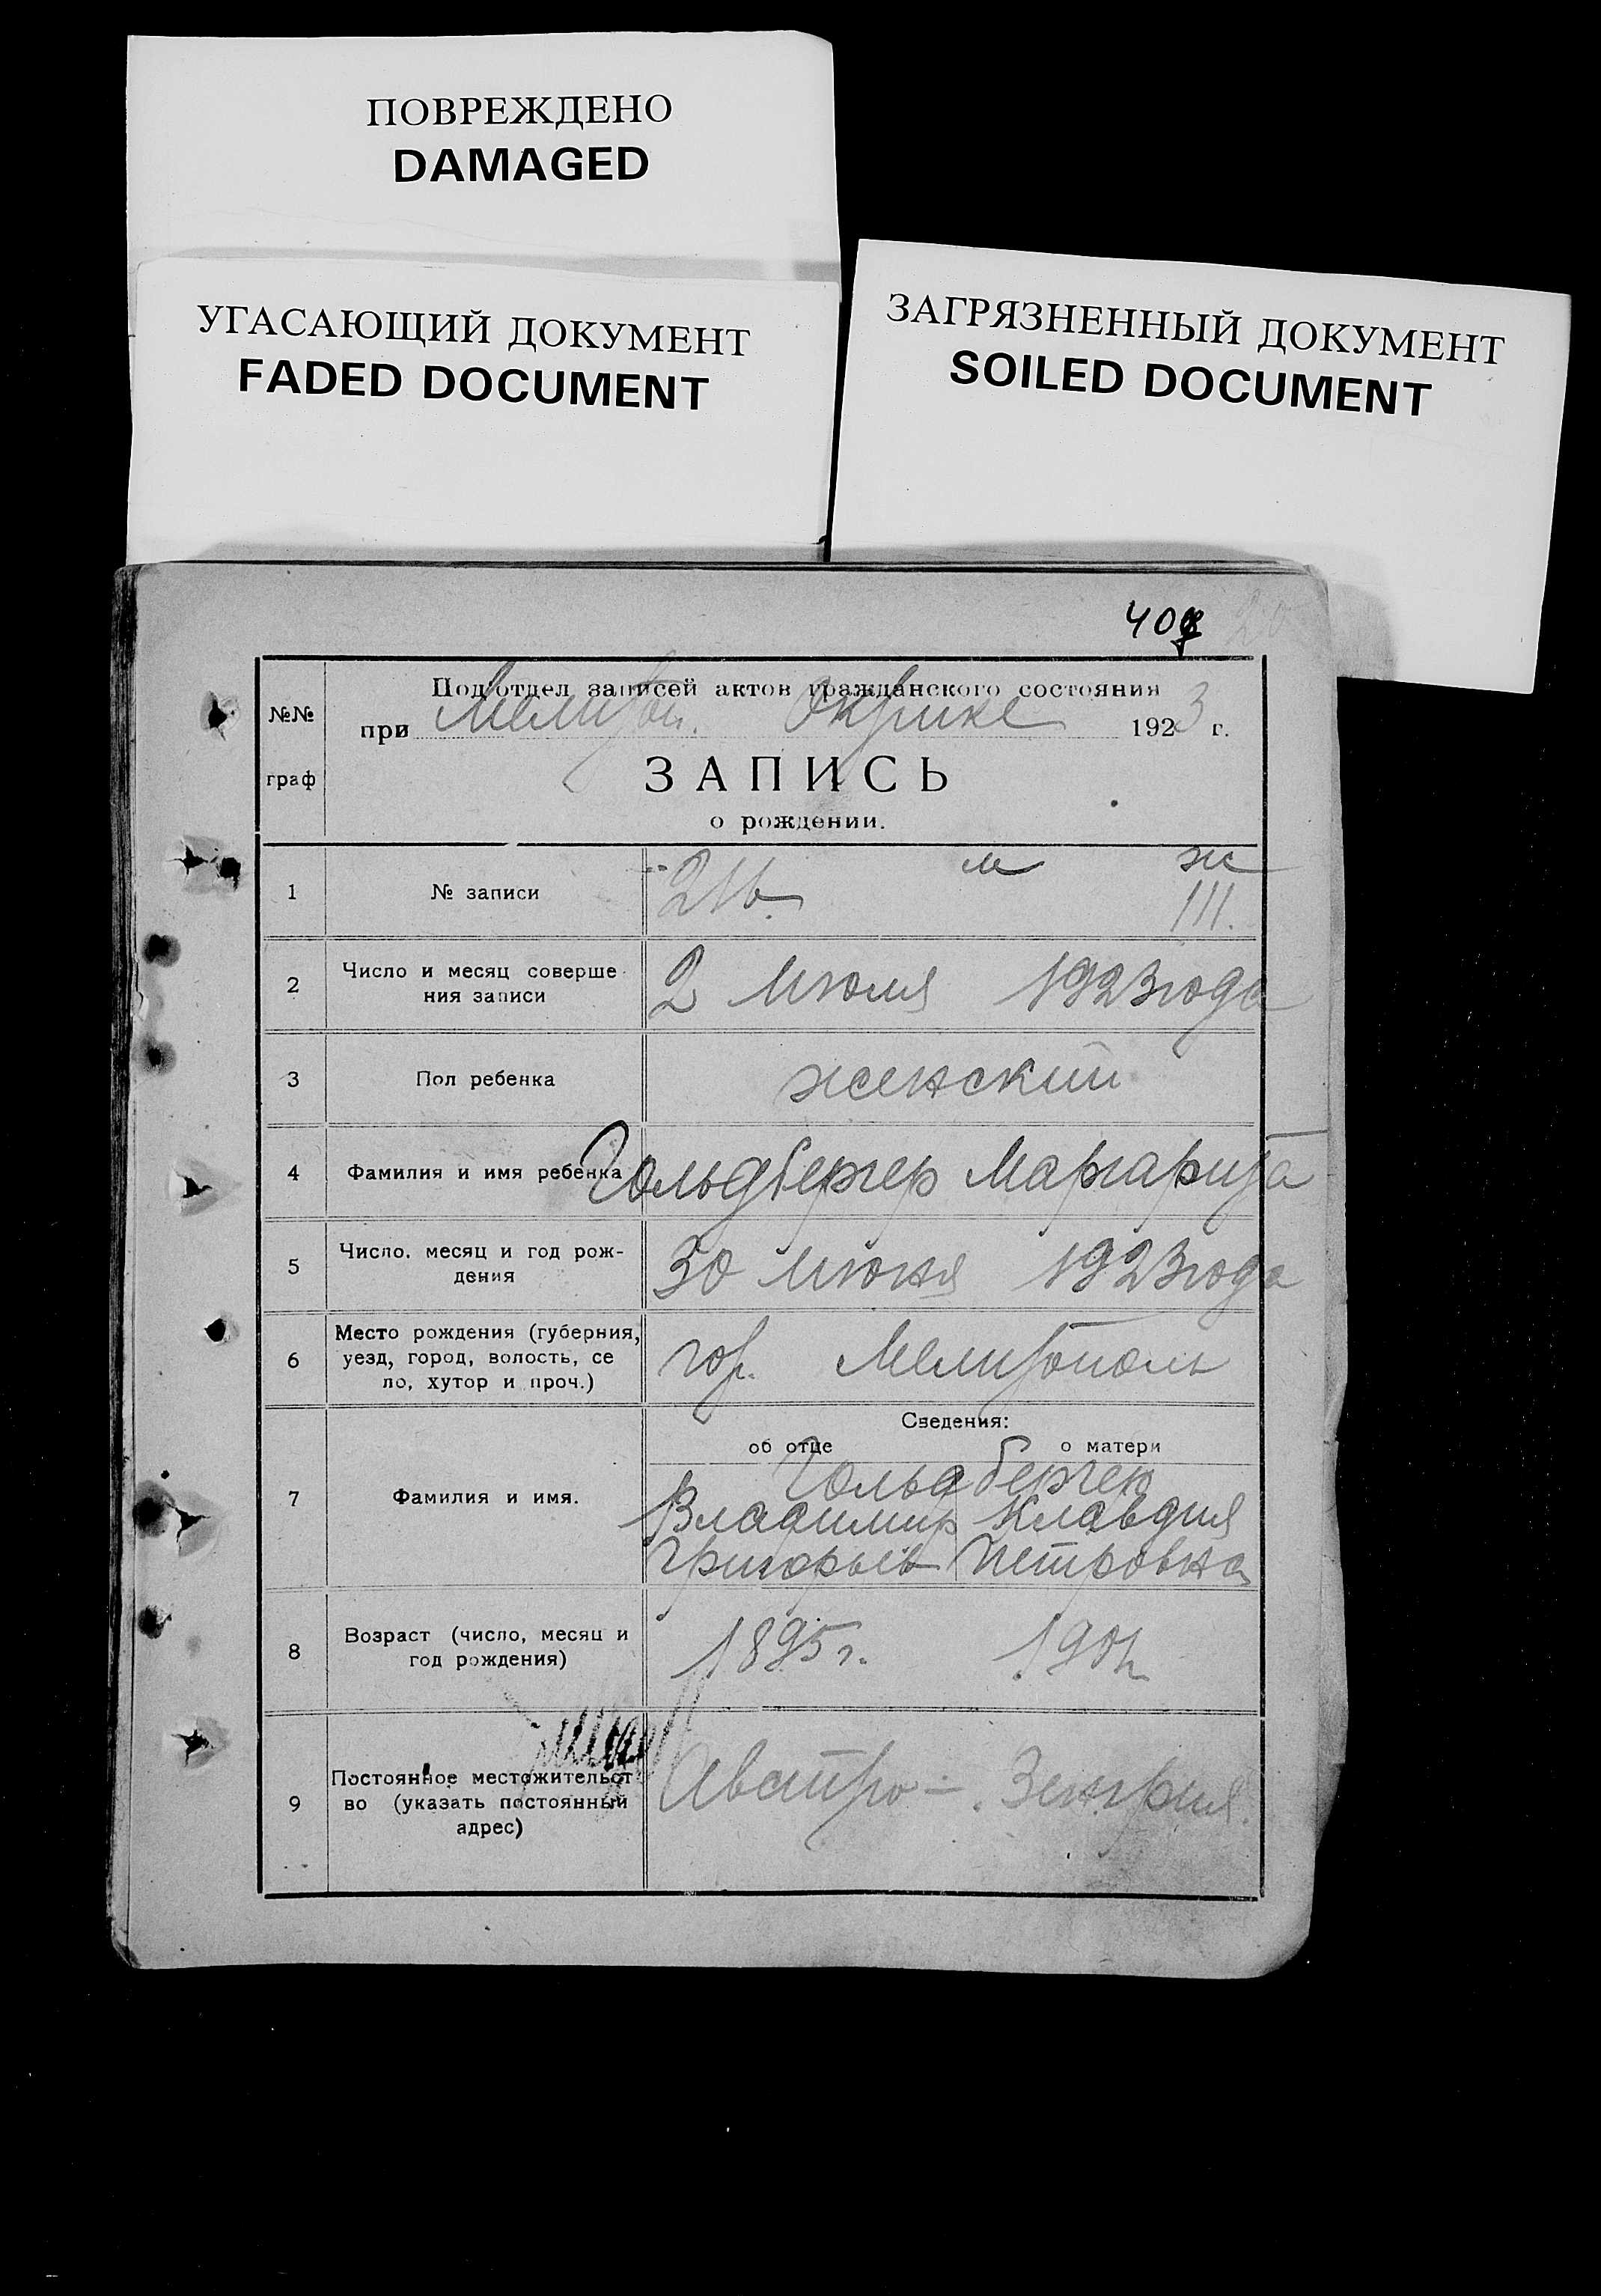 ПОВРЕЖДЕНО
DAMAGED
УГАСАЮЩИЙ ДОКУМЕНТ
FADED DOCUMENT
ЗАГРЯЗНЕННЫЙ ДОКУМЕНТ
SOILED DOCUMENT
№№
граф
Под'отдел записей актов гражданского состояния
при Мелитоп. Окрике 1923 г.
ЗАПИСЬ
о рождении.
м ж
1 № записи 216. 111.
2 Число и месяц соверше
ния записи
2 Июля 1923 года
3 Пол ребенка женский
4 Фамилия и имя ребенка Гольдбергер Маргарита
5 Число, месяц и год рож-
дения
30 Июня 1923 года
6 Место рождения (губерния,
уезд, город, волость, се
ло, хутор и проч.)
гор. Мелитополь
Сведения:
об отце о матери
7 Фамилия и имя.
Гольдбергер
Владимир Клавдия
Григорьев Петровна
8 Возраст (число, месяц и
год рождения)
1895 г.
9 Постоянное местожительст
во (указать постоянный
адрес)
Австро-Венгрия.